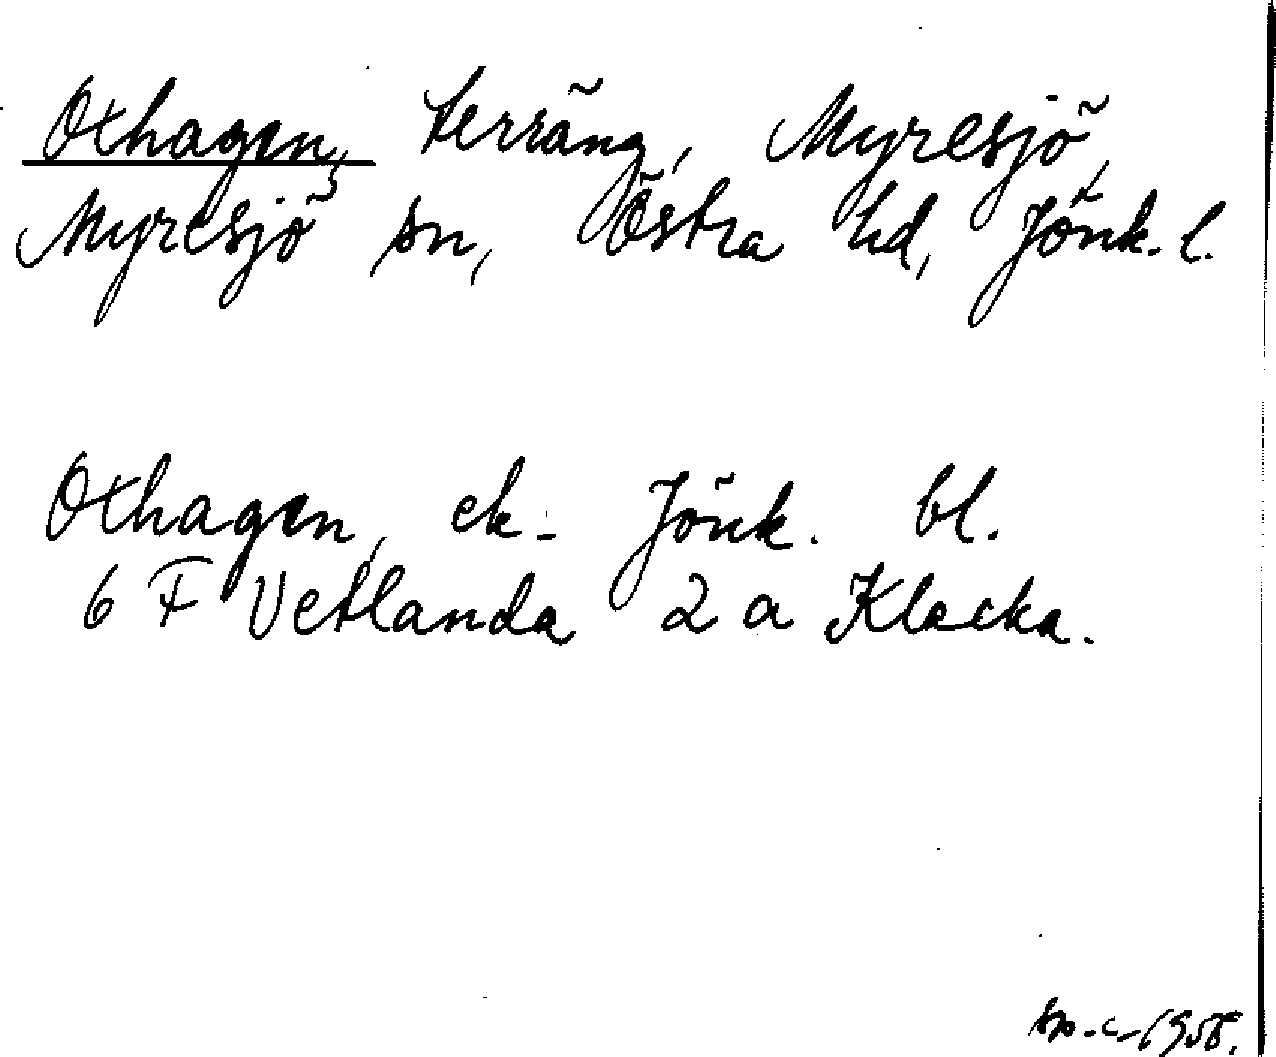 Oxhagen, terräng, Myresjö,
Myresjö sn, Östra hd, Jönk. l.
Oxhagen, ek. Jönk. bl.
6 F Vetlanda 2 a Klacka.